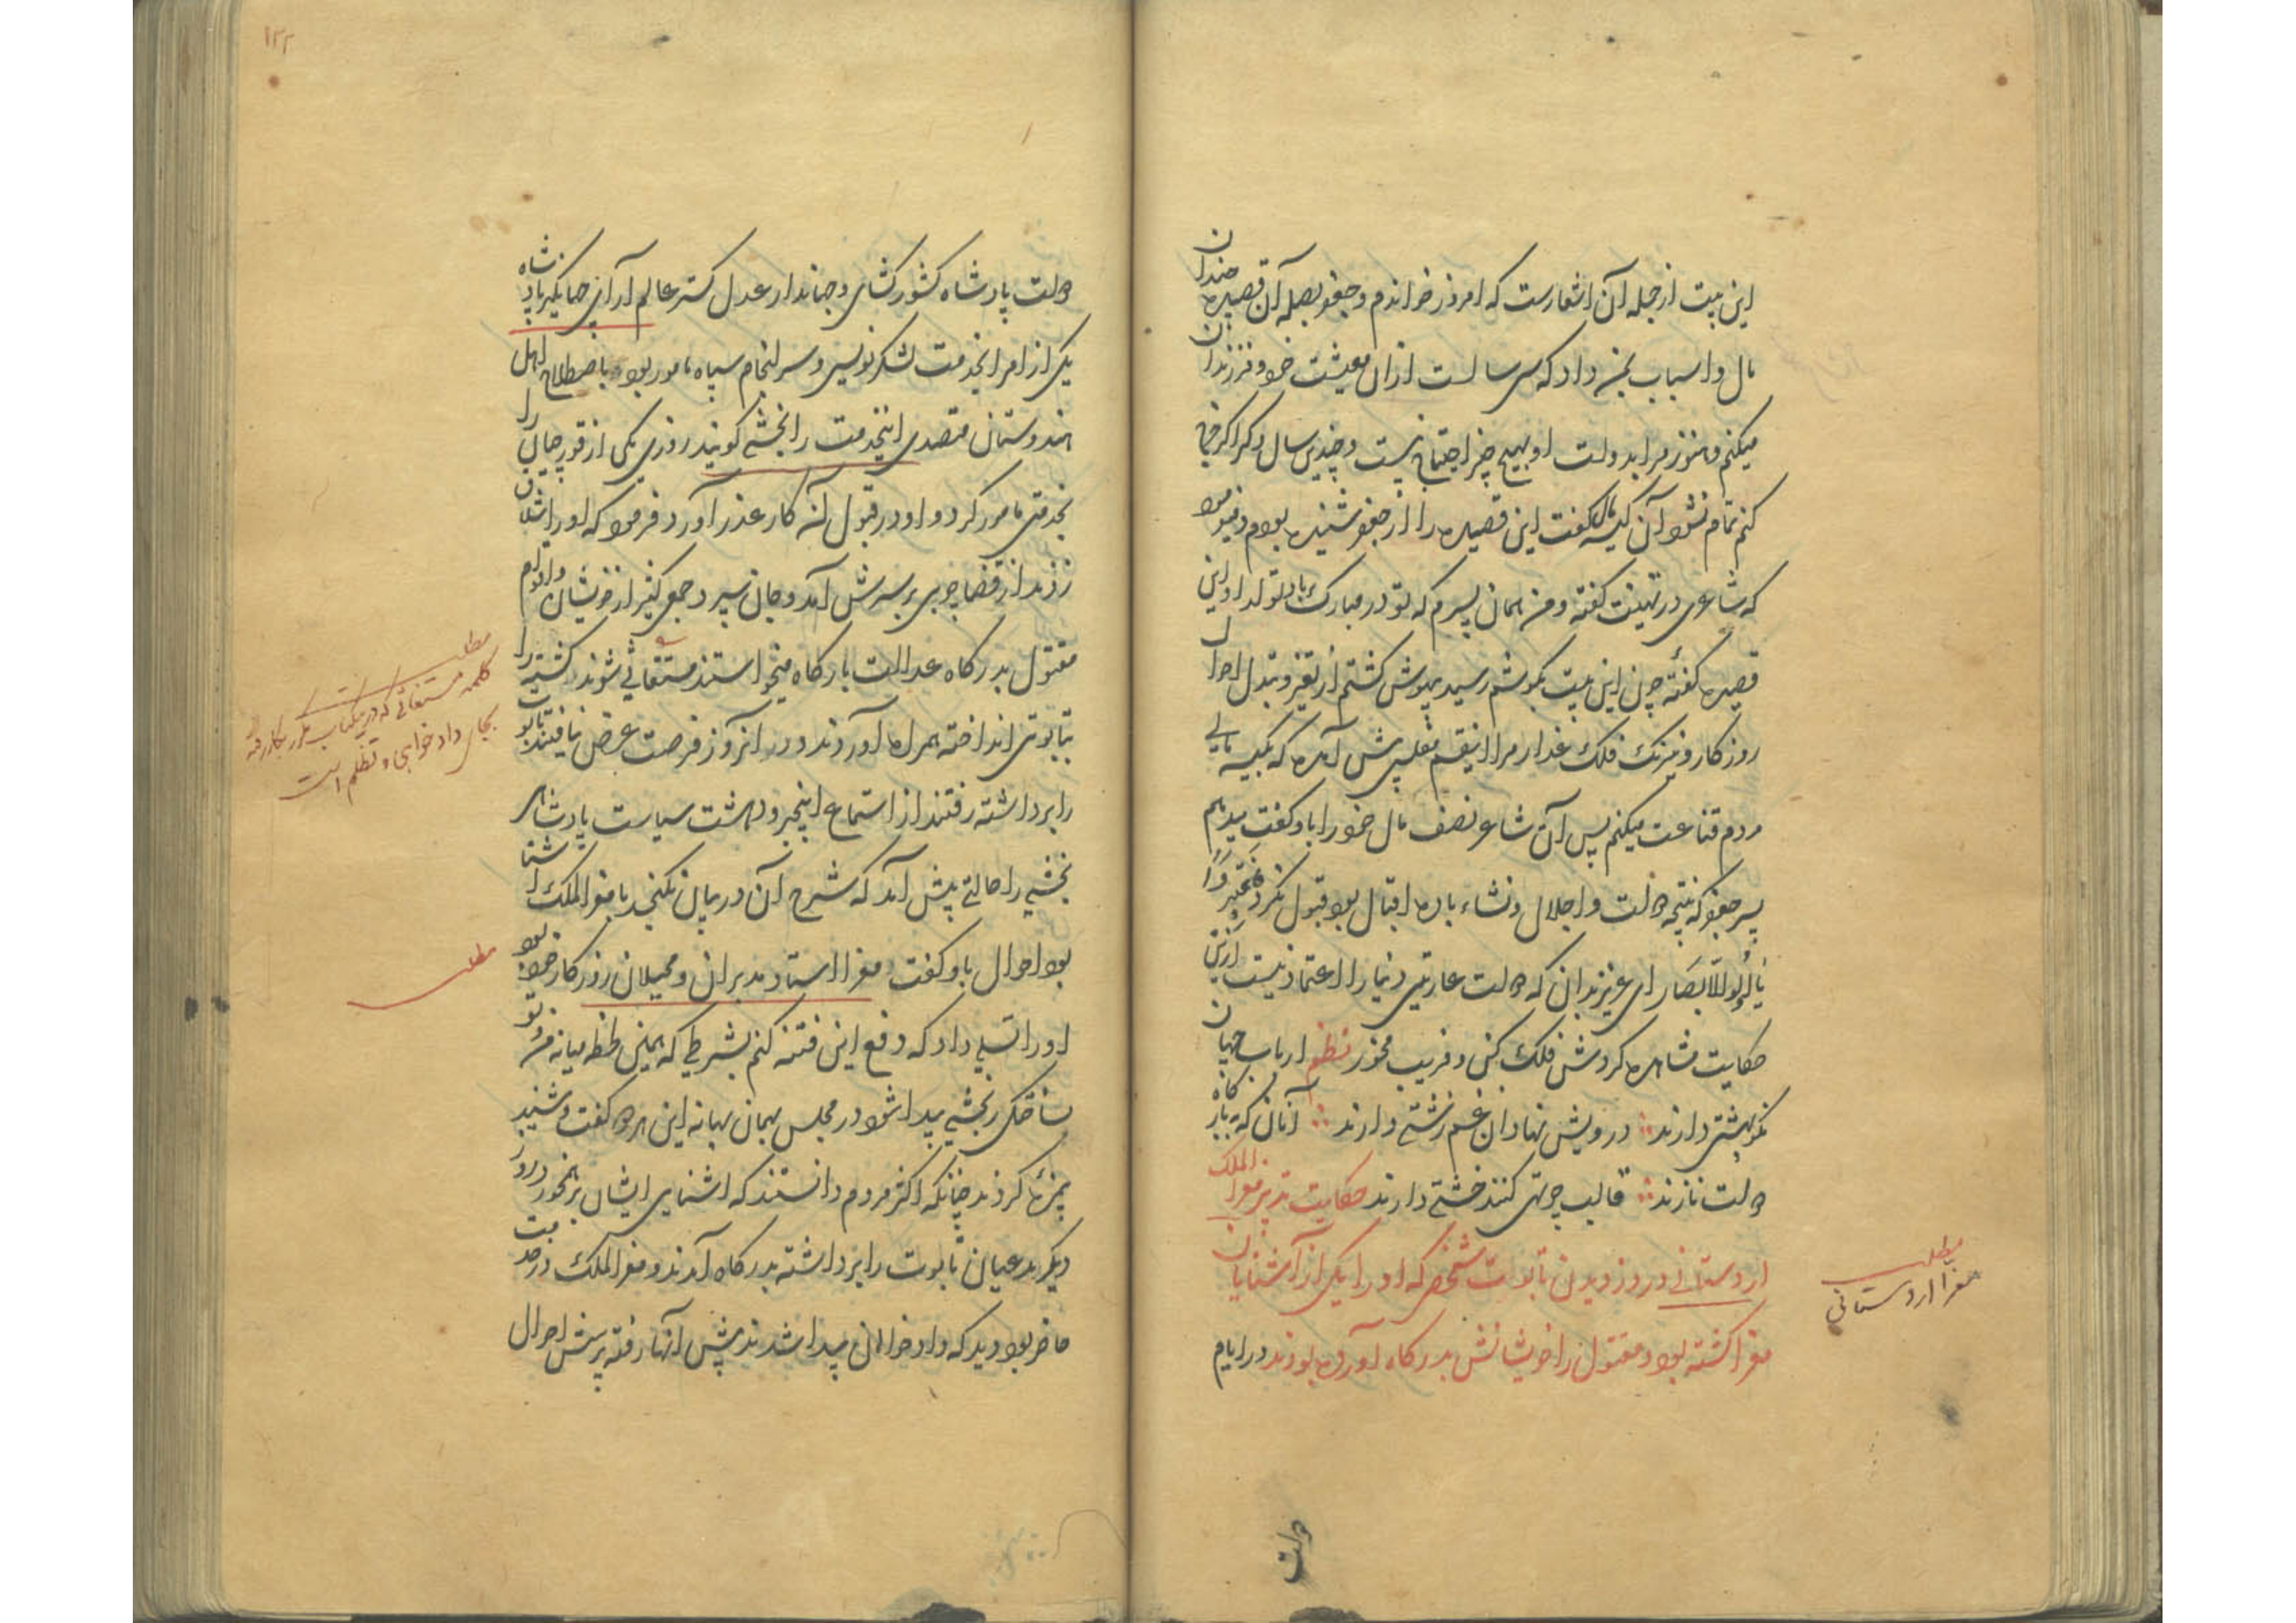 این بیت از جمله آن اشعارست که امروز خواندم و جعفر بصله آن قصیده چندان
مال و اسباب بمن داد که سی سالست ازان معیشت خود و فرزندان
میکنم و هنوز مرا بدولت او بهیچ چیز احتیاج نیست و چندین سال دکر اکر خرج
کنم تمام نشود آن کیسه مال کفت این قصیده را از جعفر شنیده بودم و میفرمود
که شاعری در تهنیت کفته و من همان پسرم که تو در مبارک باد تولد او این
قصیده کفتهٔ چون این بیت بکوشم رسید بیهوش کشتم از تغیر و تبدل احوال
روزکار و نیرنک فلک غدار مرا اینقسم تقلب پیش آمده که بکیسه مالی
مردم قناعت میکنم پس آن شاعر نصف مال خود را باو کفت میدهم
پسر جعفر که نتیجه دولت و اجلال و نشاء باده اقبال بود قبول نکرد فَاعتَبِرُوا
یَا اُولِی الاَبصَار ای عزیز بدان که دولت عاریتی دنیا را اعتماد نیست ازین
حکایت مشاهده کردش فلک کن و فریب مخور نظم ارباب جهان
نکو بهشتی دارند درویش نهادان غم زشتی دارند آنان که ببارگاه
دولت نازند قالب چو تهی کنند خشتی دارند حکایت تدبیر معز الملک
اردستانی در روز دیدن تابوت شخصی که او را یکی از آشنایان
معز کشته بود و مقتول را خویشانش بدرکاه آورده بودند در ایام
مطلب
معزا اردستانی
دولت
۱۲۲
دولت پادشاه کشور کشای و جهاندار عدل کستر عالم آرای جهانکیر پادشاه
یکی از امرا بخدمت لشکر نویسی و سرانجام سپاه مامور بود باصطلاح اهل
هندوستان متصدی اینخدمت را بخشی کویند روزی یکی از قورچیان را
بخدمتی مامور کرد و او در قبول آن کار عذر آورد فرمود که او را شلاق
زدند از قضا چوبی بر سرش آمد و جان سپرد جمعی کثیر از خویشان و اقوام
مقتول بدرکاه عدالت بارکاه میخواستند مستغاثی شوند کشته را
بتابوتی انداخته همراه آوردند و در آنروز فرصت عرض نیافتند تابوت
را برداشته رفتند از استماع اینخبر و دهشت سیاست پادشاهی
بخشی را حالتی پیش آمد که شرح آن در بیان نکنجد با معز الملک آشنا
بود احوال باو کفت معزا استاد مدبران و محیلان روزکار خود بود
او را تسلی داد که دفع این فتنه کنم بشرطی که همین لحظه میانه من و تو
مناقشه رنجشی پیدا شود در مجلس بهمان بهانه این هردو کفت و شنید
پیش کردند چنانکه اکثر مردم دانستند که اشنایی ایشان برهم خورد روز
دیکر مدعیان تابوت را برداشته بدرکاه آمدند و معز الملک در خدمت
حاضر بود دید که دادخواهان پیدا شدند پیش آنها رفته پرسش احوال
مطلب
کلمه مستغاثی که درین کتاب مکرر بکار رفته
بجای دادخواهی و تظلم است
مطلب